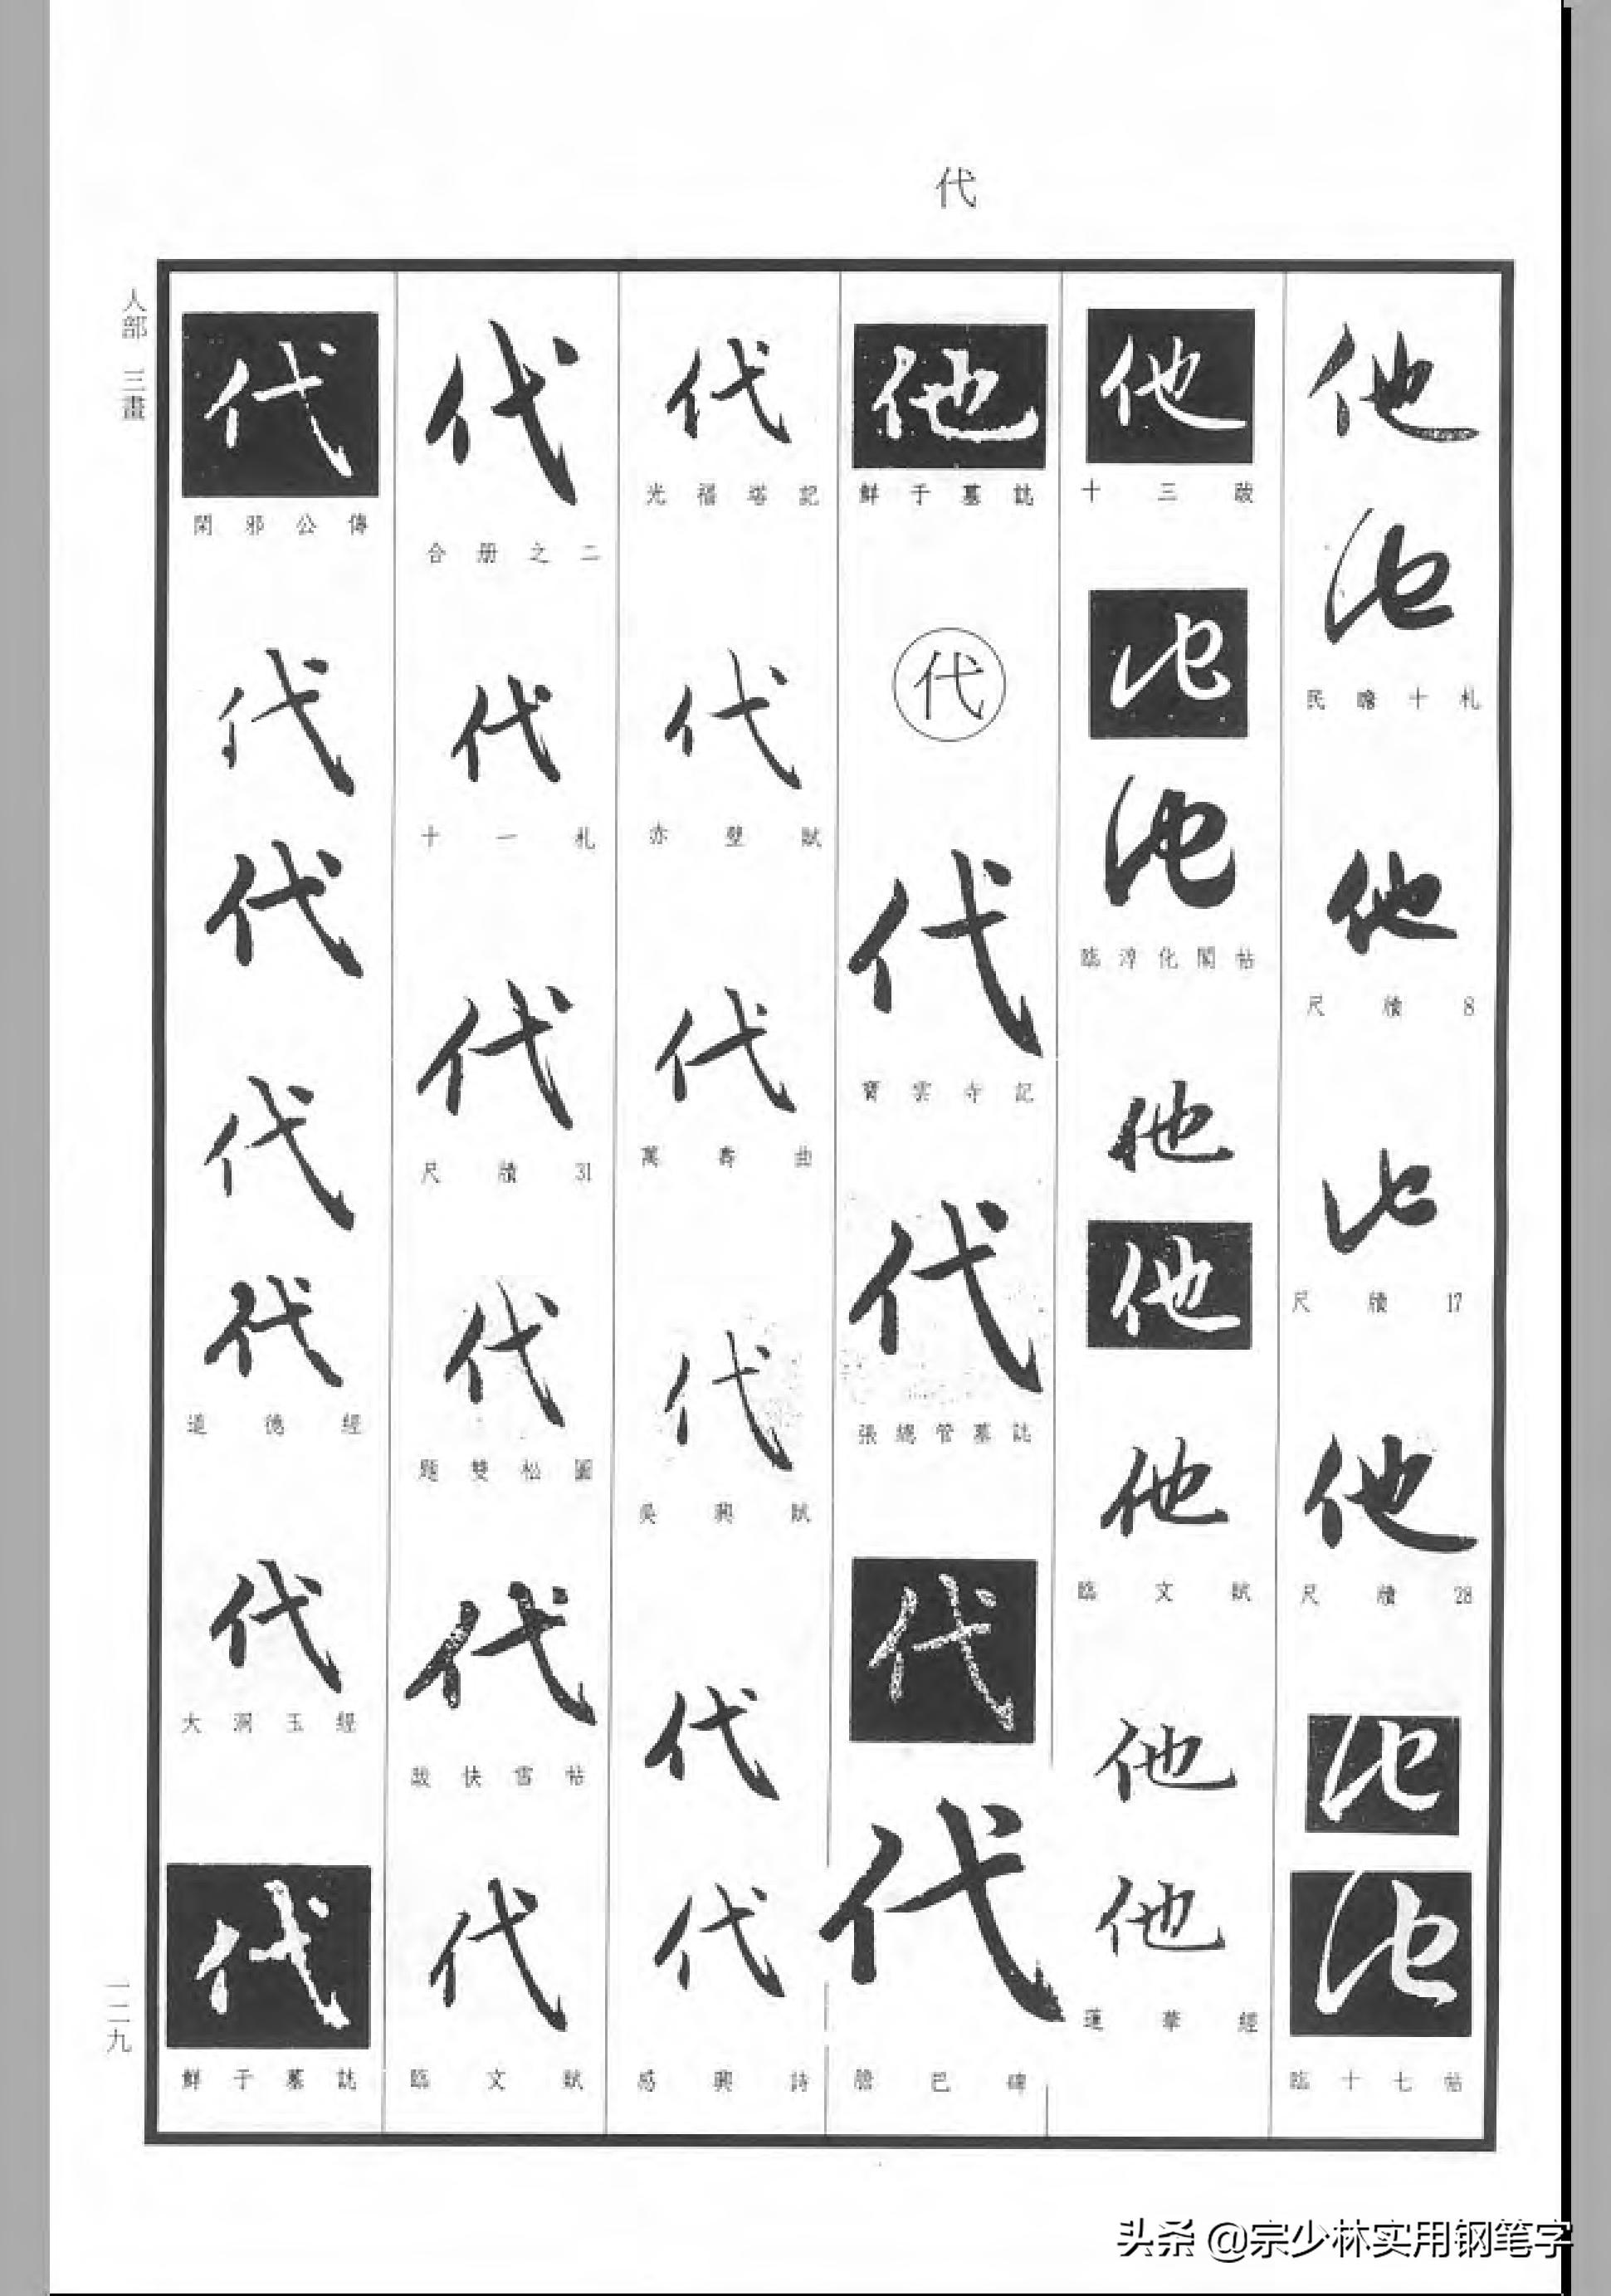 代
人部 三畫
他
他
民瞻十札
他
尺牘8
他
尺牘17
他
尺牘28
他
他
臨十七帖
他
十三跋
他
他
臨淳化閣帖
他
他
他
臨文賦
他
他
蓮華經
他
鮮于墓誌
代
代
寶雲寺記
代
張總管墓誌
代
代
膽巴碑
代
光福塔記
代
赤壁賦
代
萬壽曲
代
吳興賦
代
代
感興詩
代
合册之二
代
十一札
代
尺牘31
代
題雙松圖
代
跋快雪帖
代
臨文賦
代
閑邪公傳
代
代
代
代
道德經
代
大洞玉經
代
鮮于墓誌
一二九
头条 @宗少林实用钢笔字